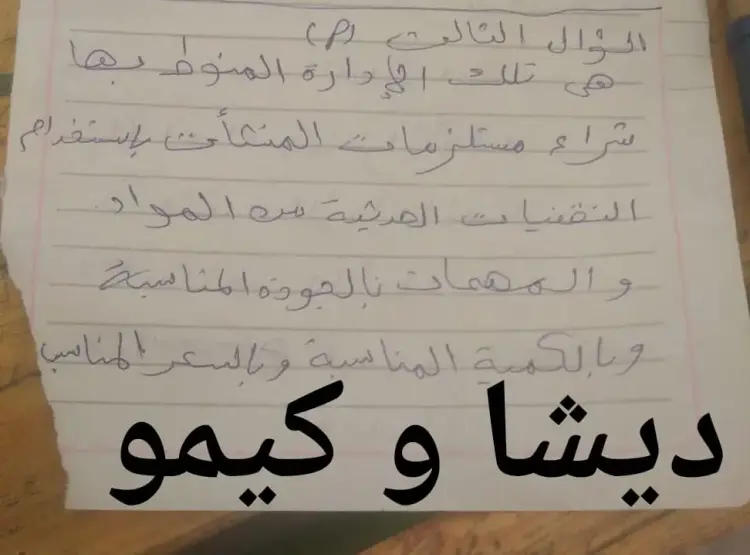 السؤال الثالث (م)
هى تلك الإدارة المنوط بها
شراء مستلزمات المنشأت بإستخدام
التقنيات الحديثة من المواد
و المهمات بالجودة المناسبة
وبالكمية المناسبة وبالسعر المناسب
ديشا و كيمو